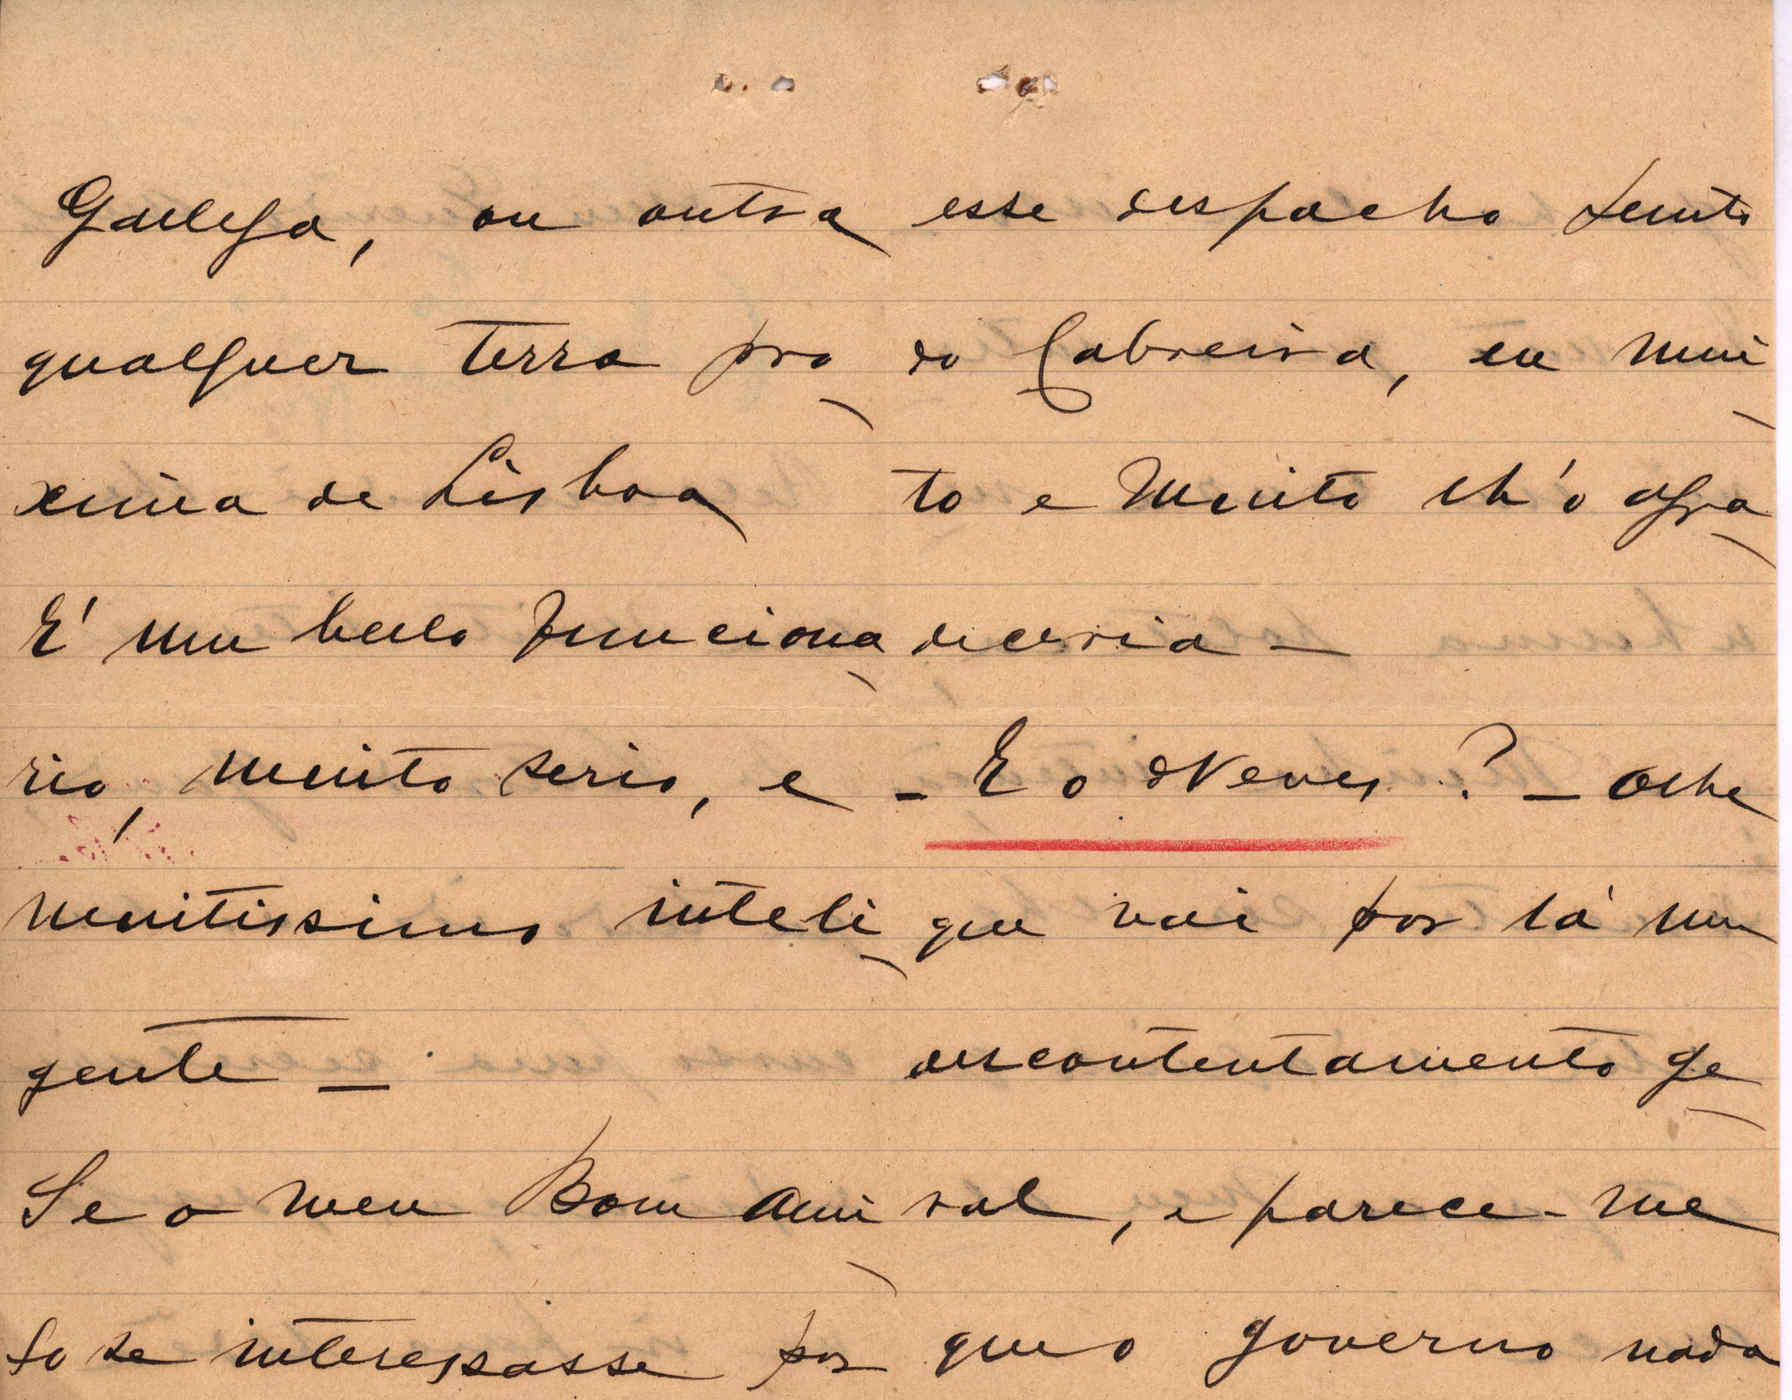 Gallega, ou outra
qualquer terra pro
xima de Lisboa
E' um bello funciona
rio, muito serio, e
muitissimo inteli
gente —
Se o meu Bom Ami
go se interessasse por
esse despacho junto
do Cabreira, eu mui
to e muito lh'o agra
deceria —
— E o Neves ? — Olhe
que vai por lá um
descontentamento ge
ral, e parece-me
que o governo nada